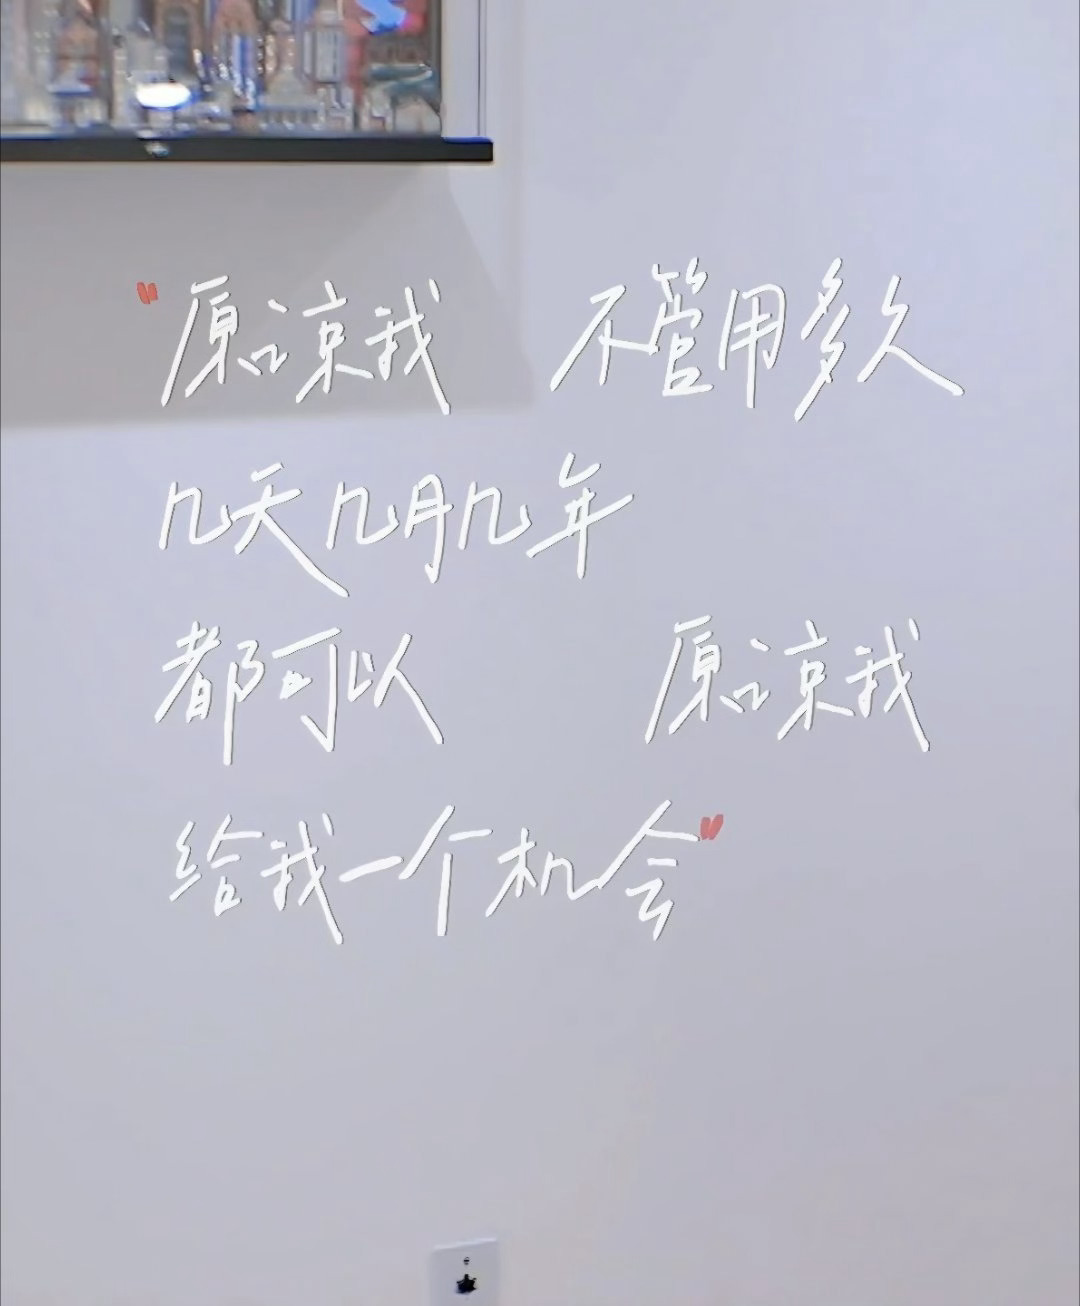 "原谅我 不管用多久
几天几月几年
都可以 原谅我
给我一个机会"